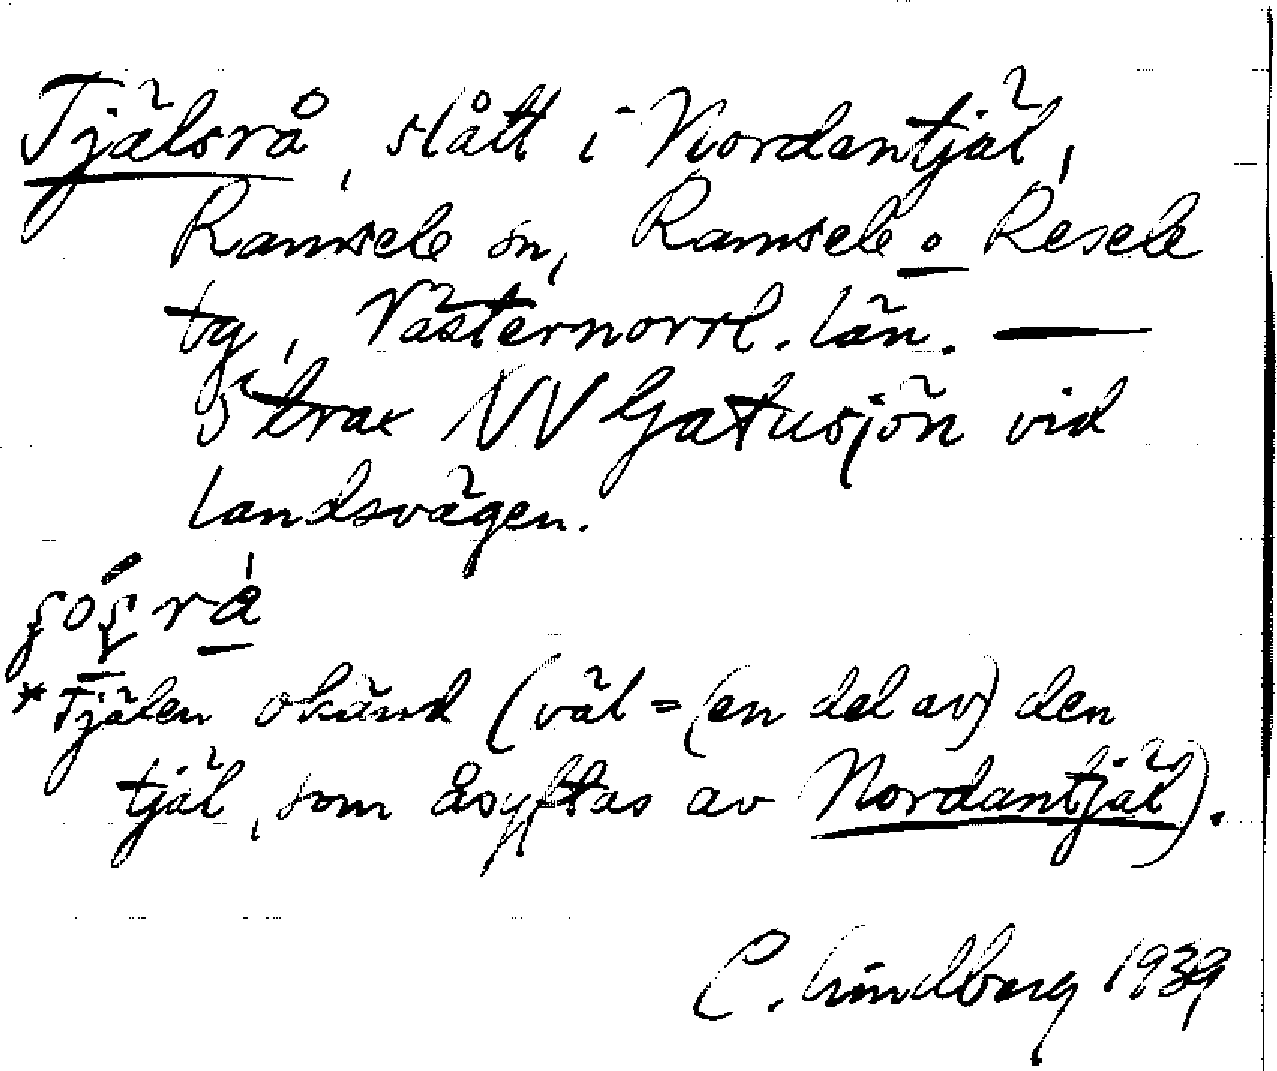 Tjälsrå, slått i Nordantjäl,
Ramsele sn, Ramsele o Resele
tg, Västernorrl. län. —
Strax NV Gatusjön vid
landsvägen.
*Tjälen okänd (väl = (en del av) den
tjäl, som åsyftas av Nordantjäl).
C. Lindberg 1939